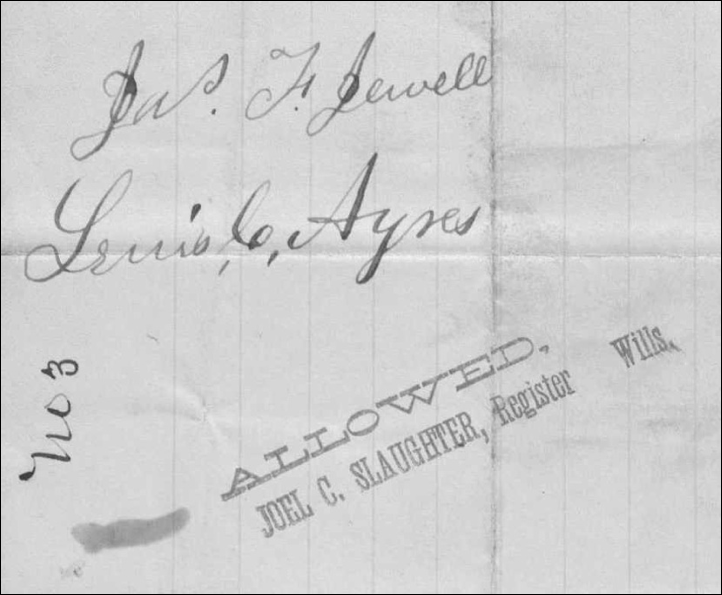 Jas. F. Jewell
Lewis, C, Ayres
No 3
ALLOWED.
JOEL C. SLAUGHTER, Register Wills.